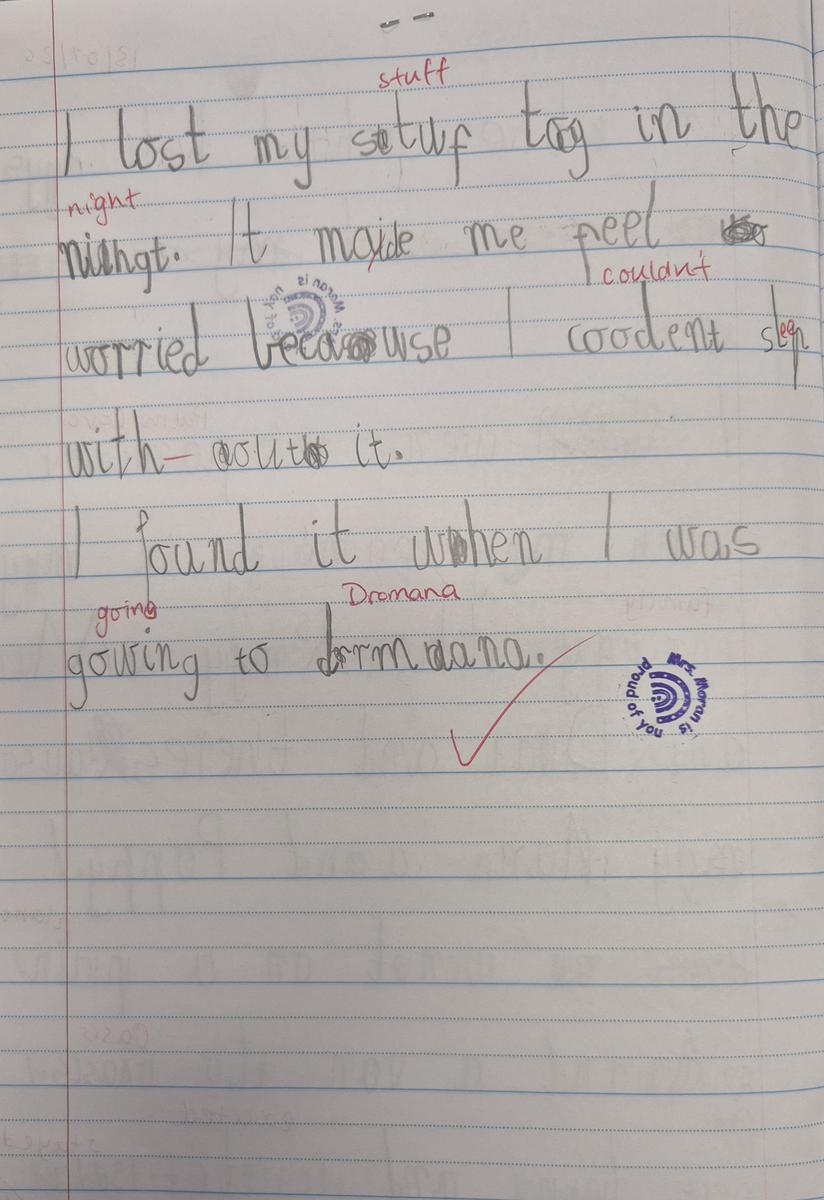 stuff
I lost my sotwf toy in the
night
niangt. It maide me feel
couldn't
worried because I coodent slep
with- out it.
I found it when I was
going Dromana
gowing to drmaana.
Mrs. Moran is proud of you